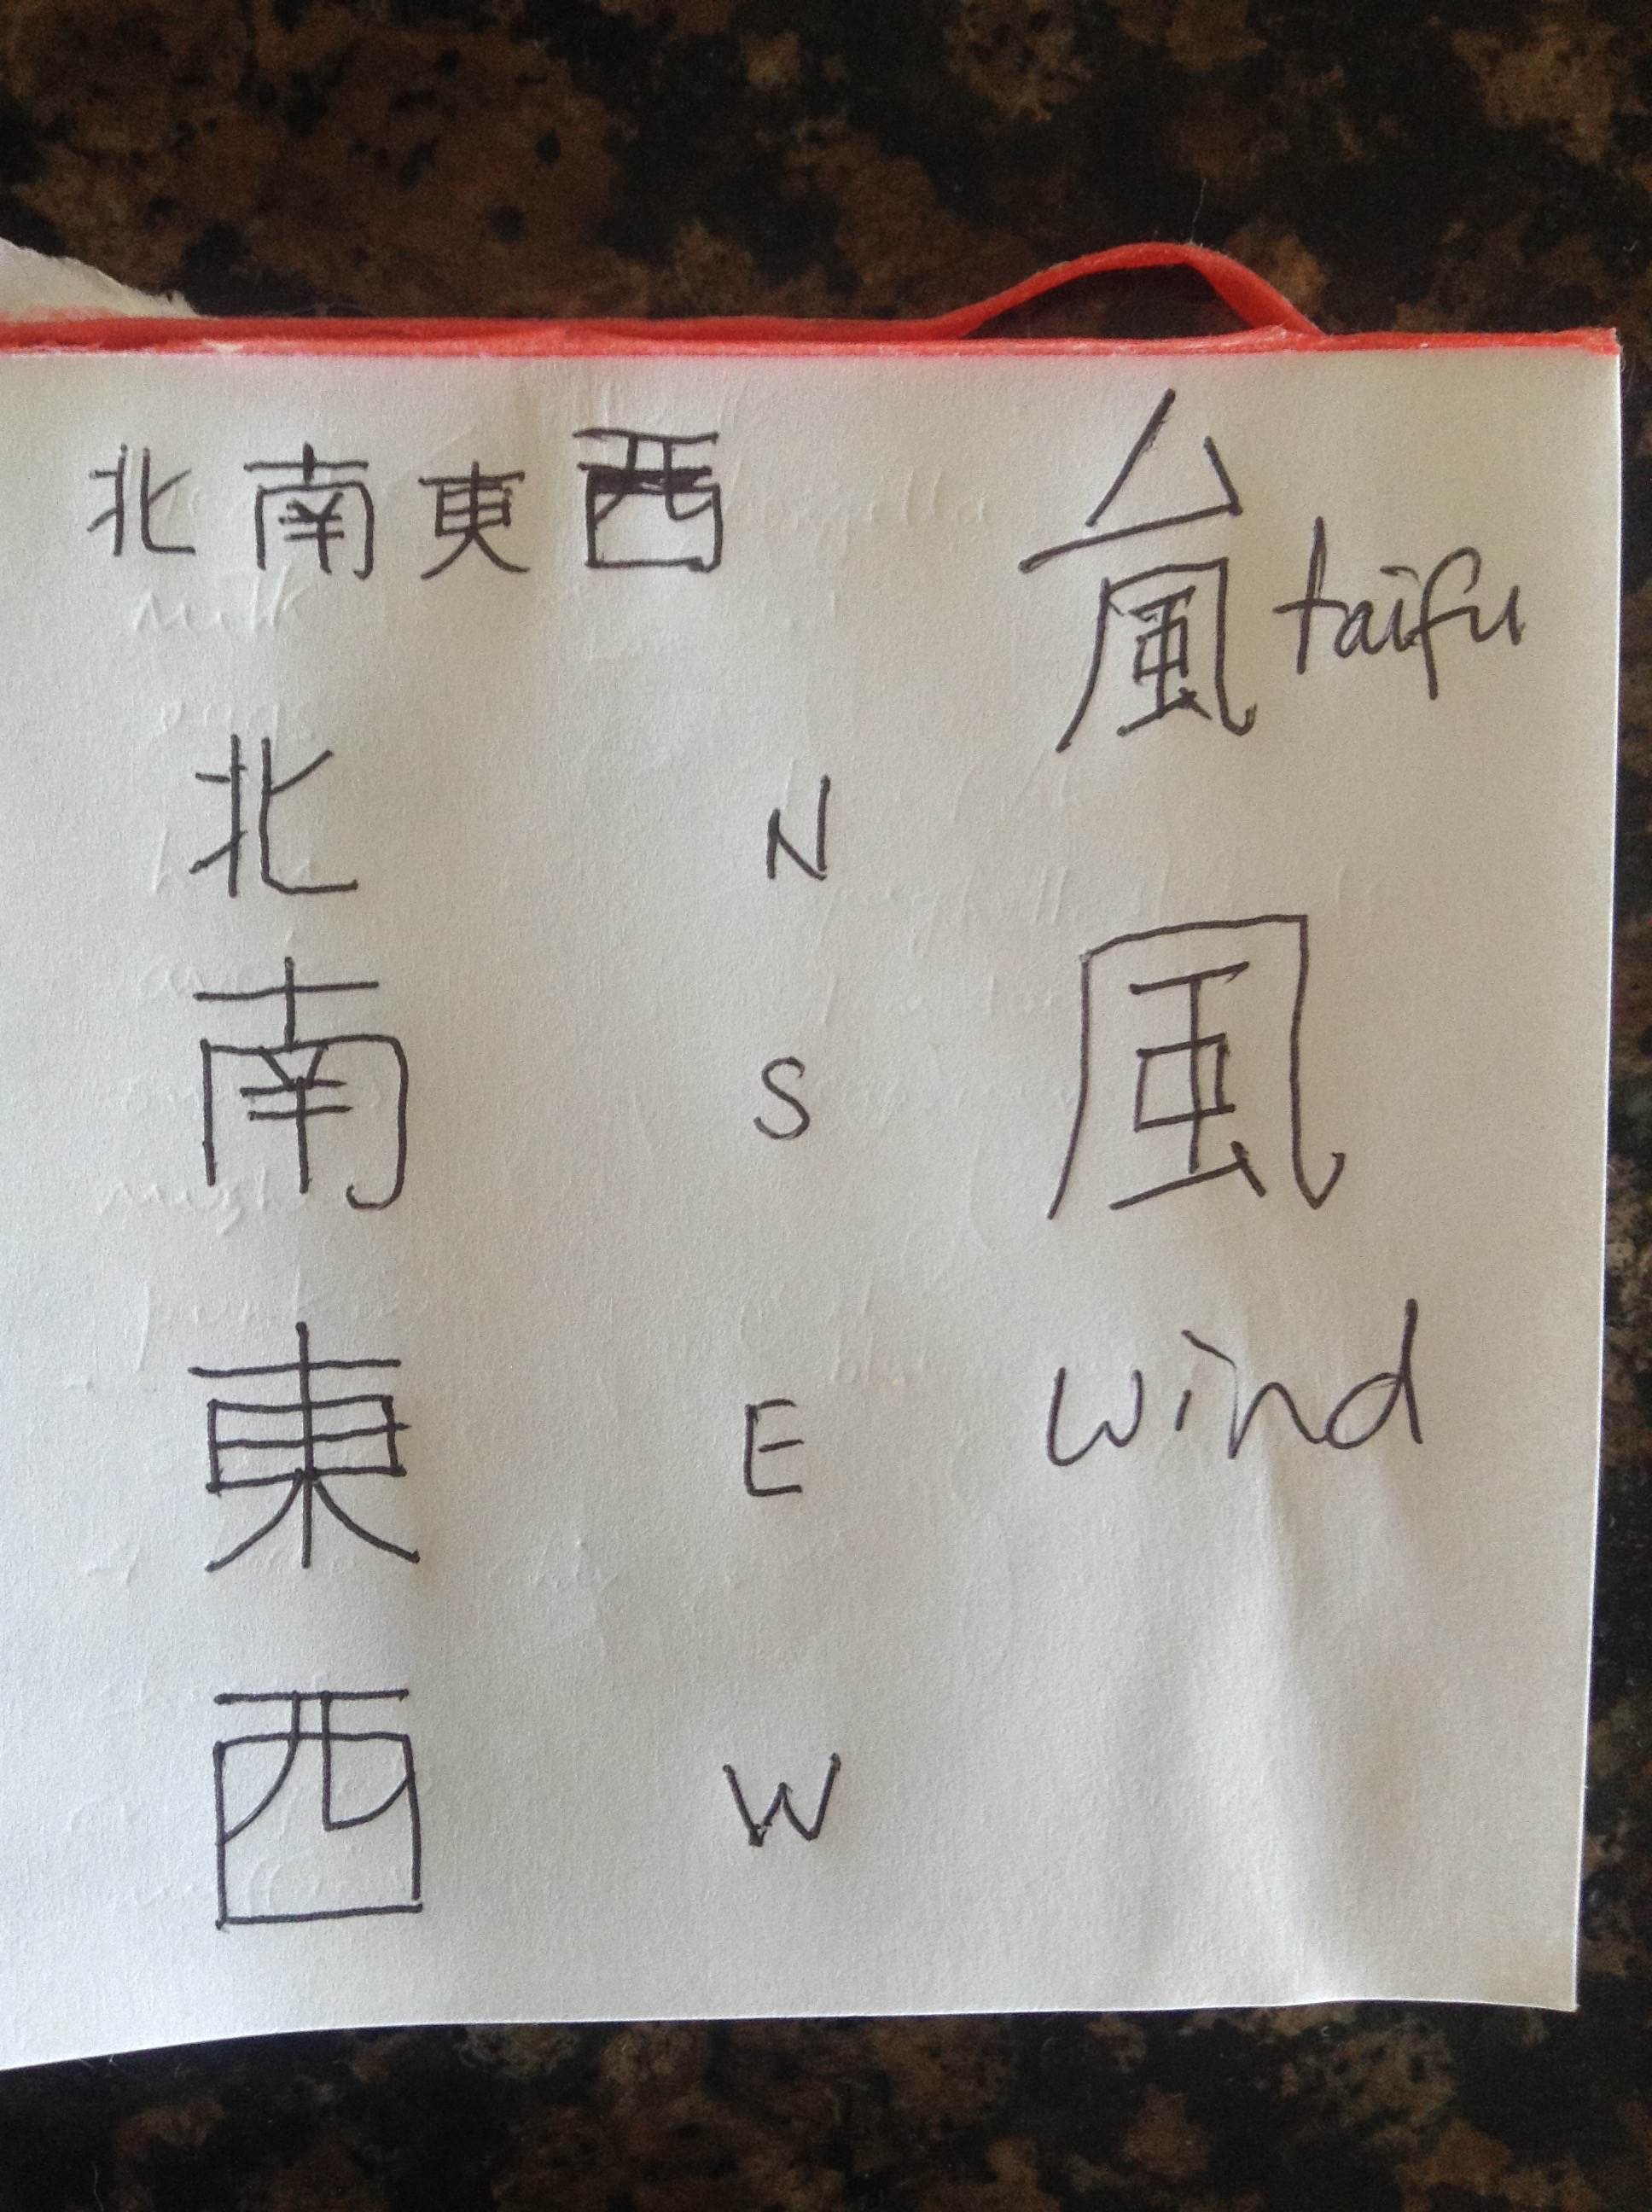 北南東西
台風 taifu
北 N
南 S
風
wind
東 E
西 W